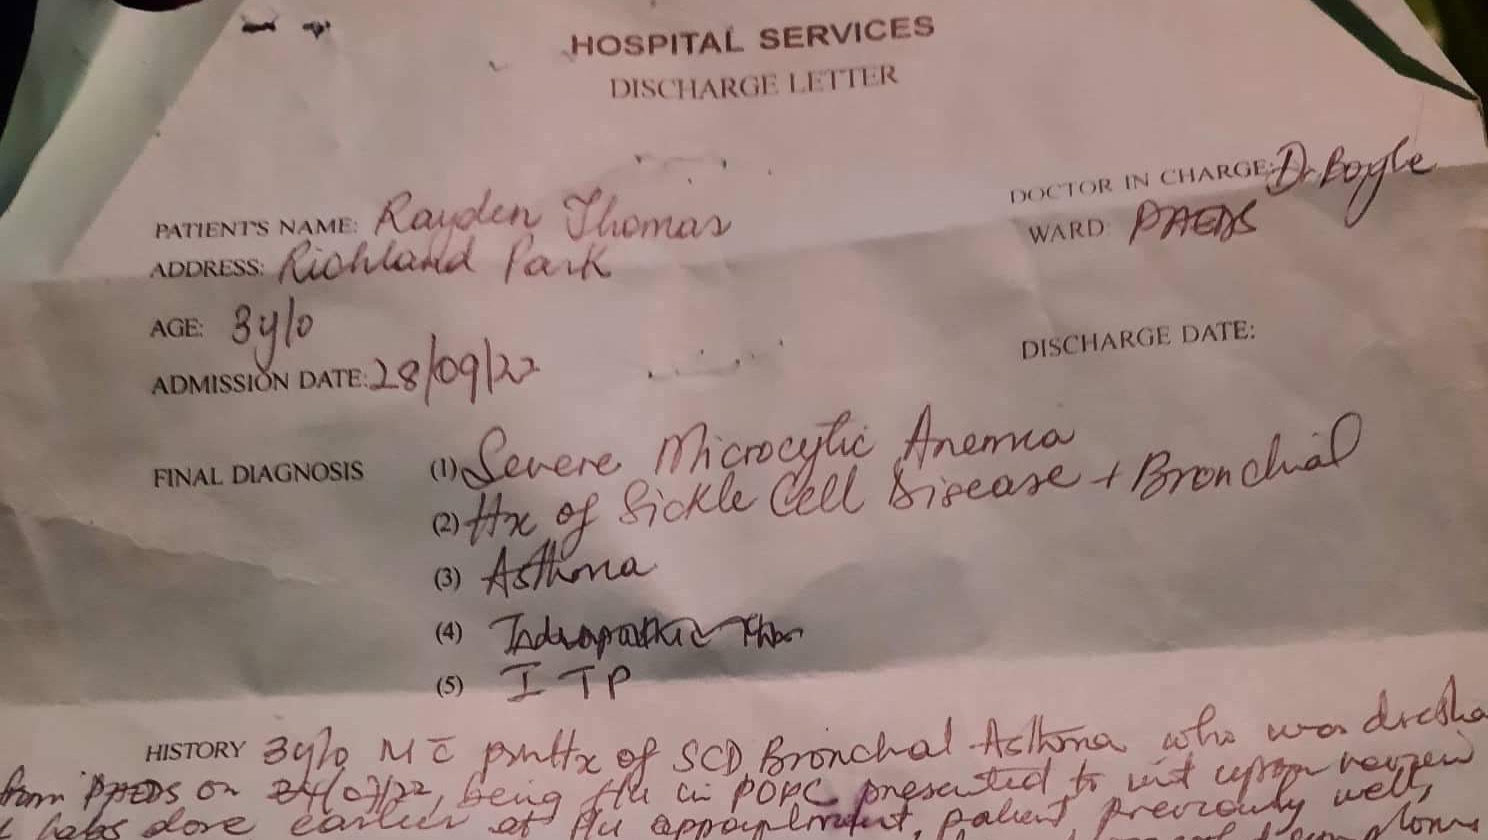 HOSPITAL SERVICES
DISCHARGE LETTER
DOCTOR IN CHARGE: Dr Boyle
PATIENT'S NAME: Rayden Thomas
WARD: PAEDS
ADDRESS: Richland Park
AGE: 3y/o
DISCHARGE DATE:
ADMISSION DATE: 28/09/22
FINAL DIAGNOSIS (1) Severe Microcytic Anemia
(2) Hx of Sickle Cell Disease + Bronchial
(3) Asthma
(4)
(5) ITP
HISTORY 3y/o M c̄ pmHx of SCD, Bronchial Asthma who was
from PAEDS on being flu in POPC presented to upon review
labs done earlier at flu appointment, patient previously well,